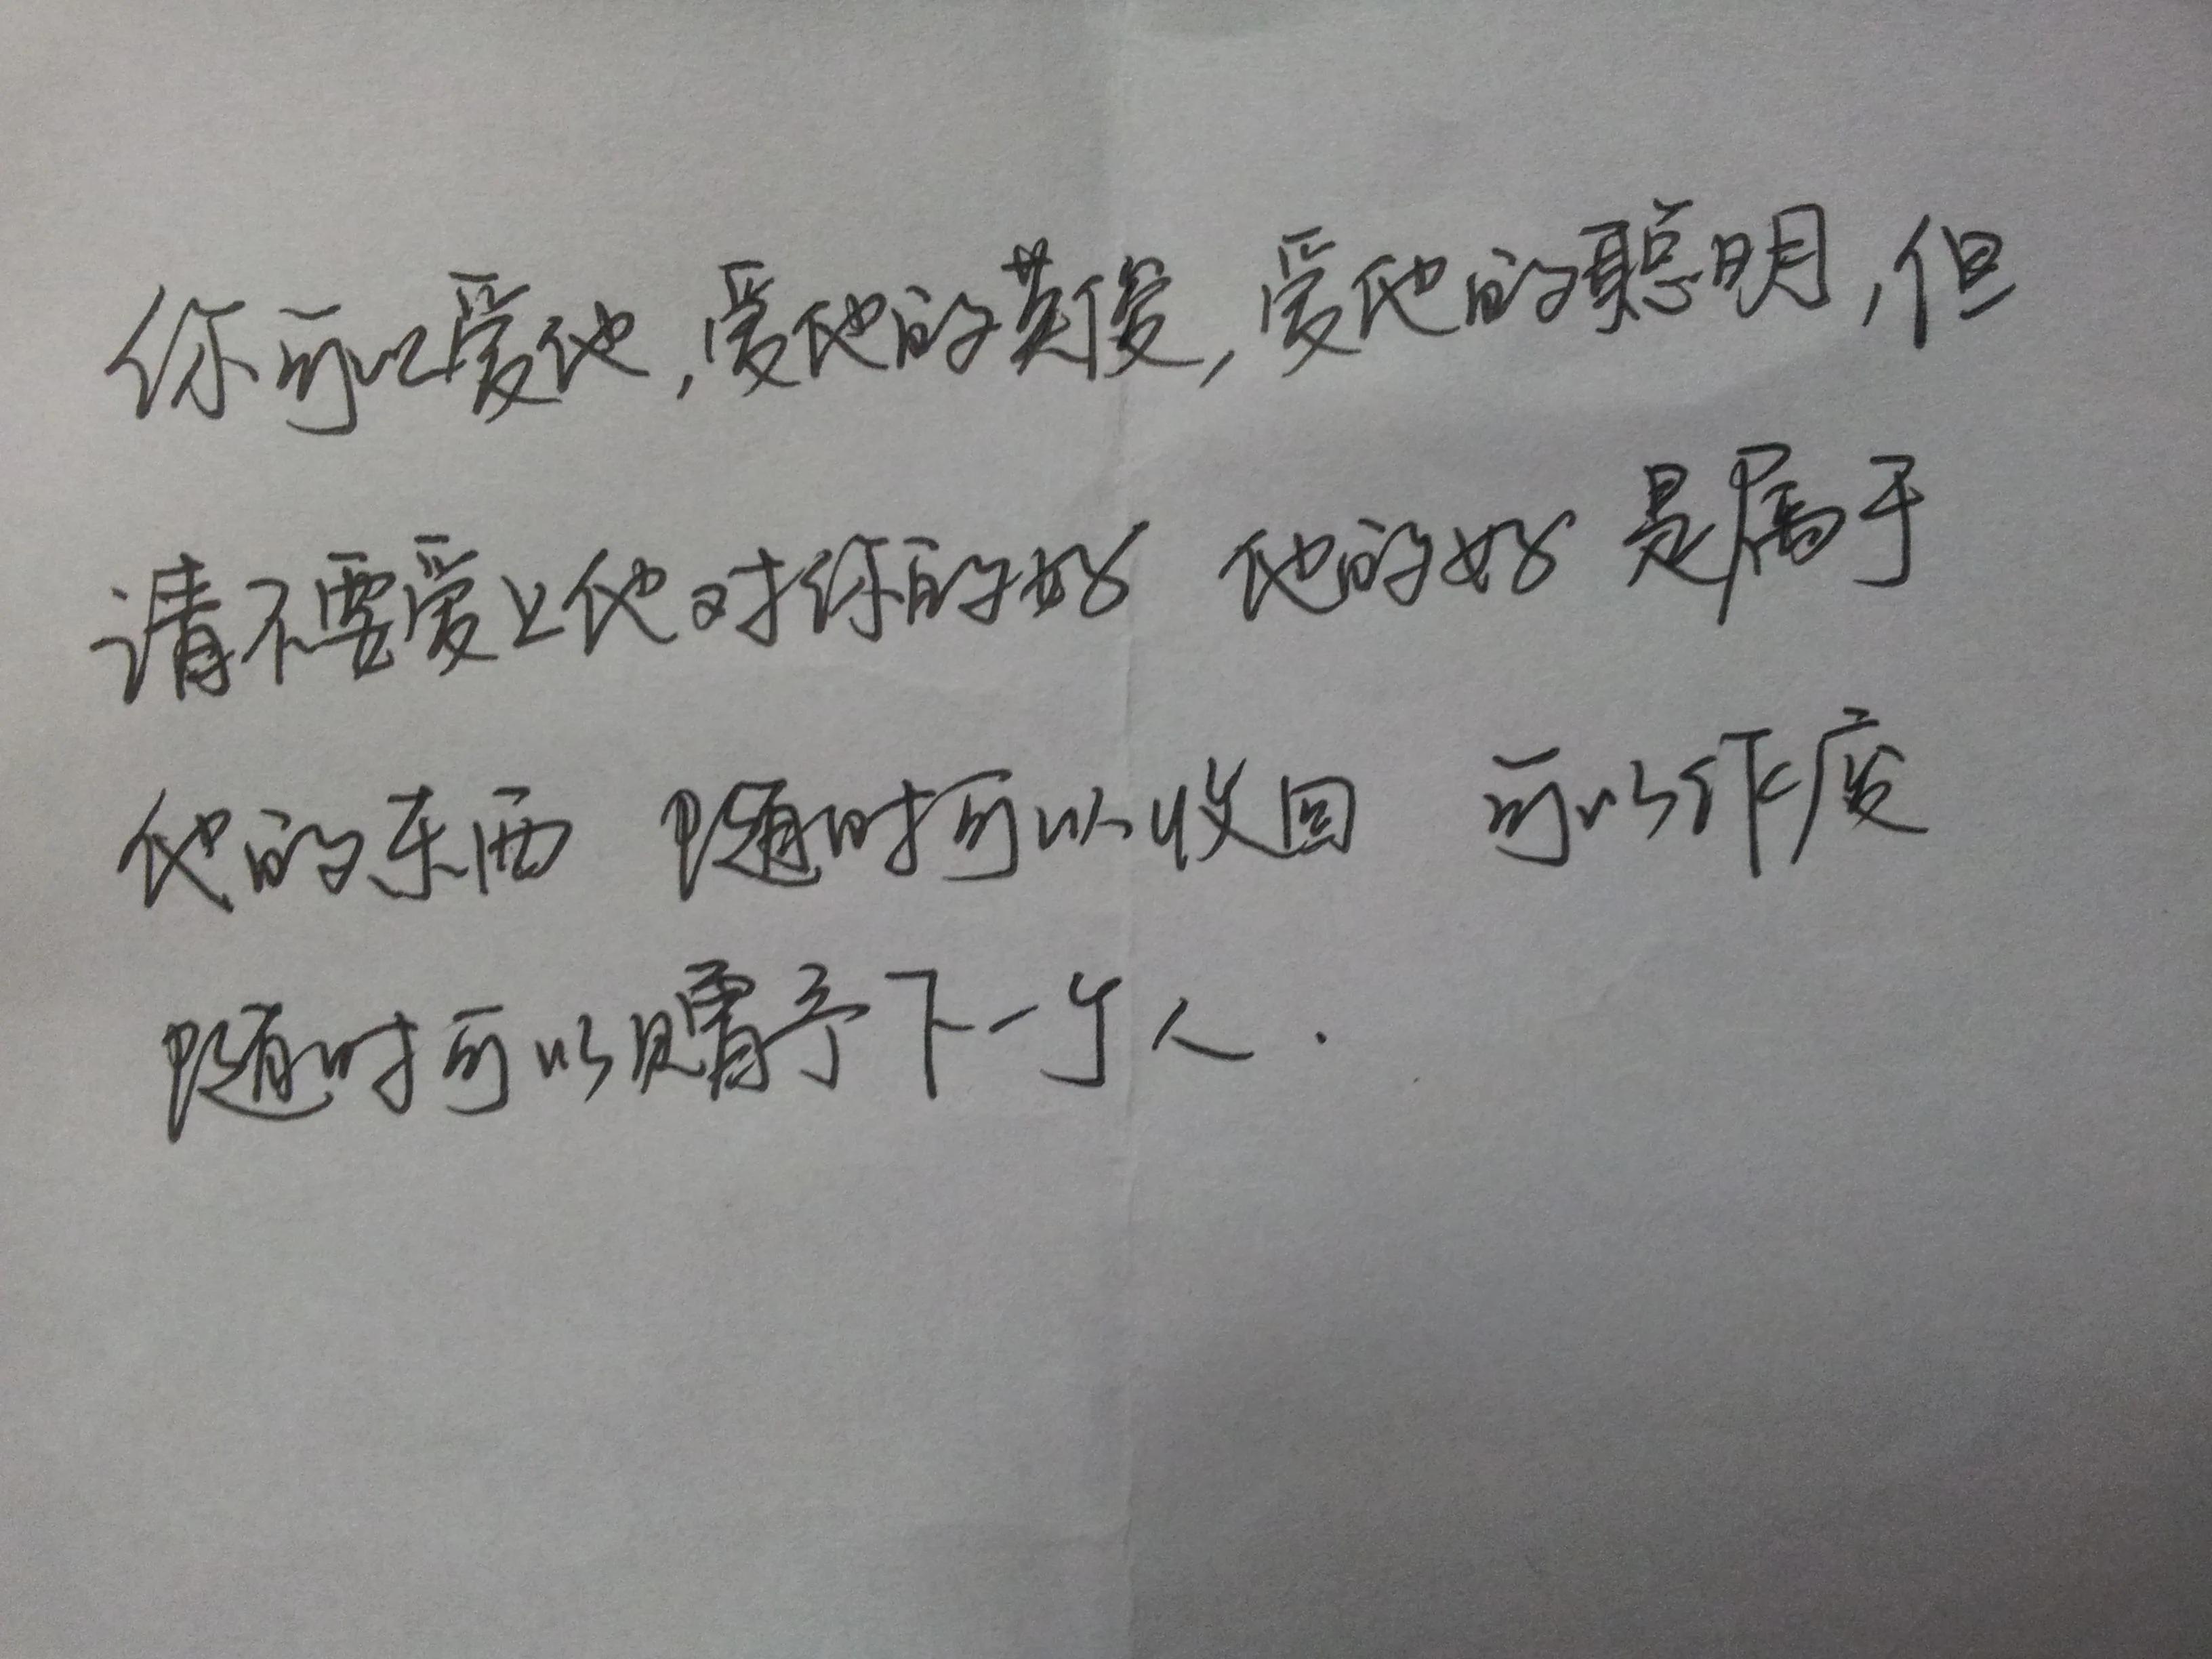 你可以爱他,爱他的英俊,爱他的聪明,但
请不要爱上他对你的好 他的好是属于
他的东西 随时可以收回 可以作废
随时可以赠予下一个人.